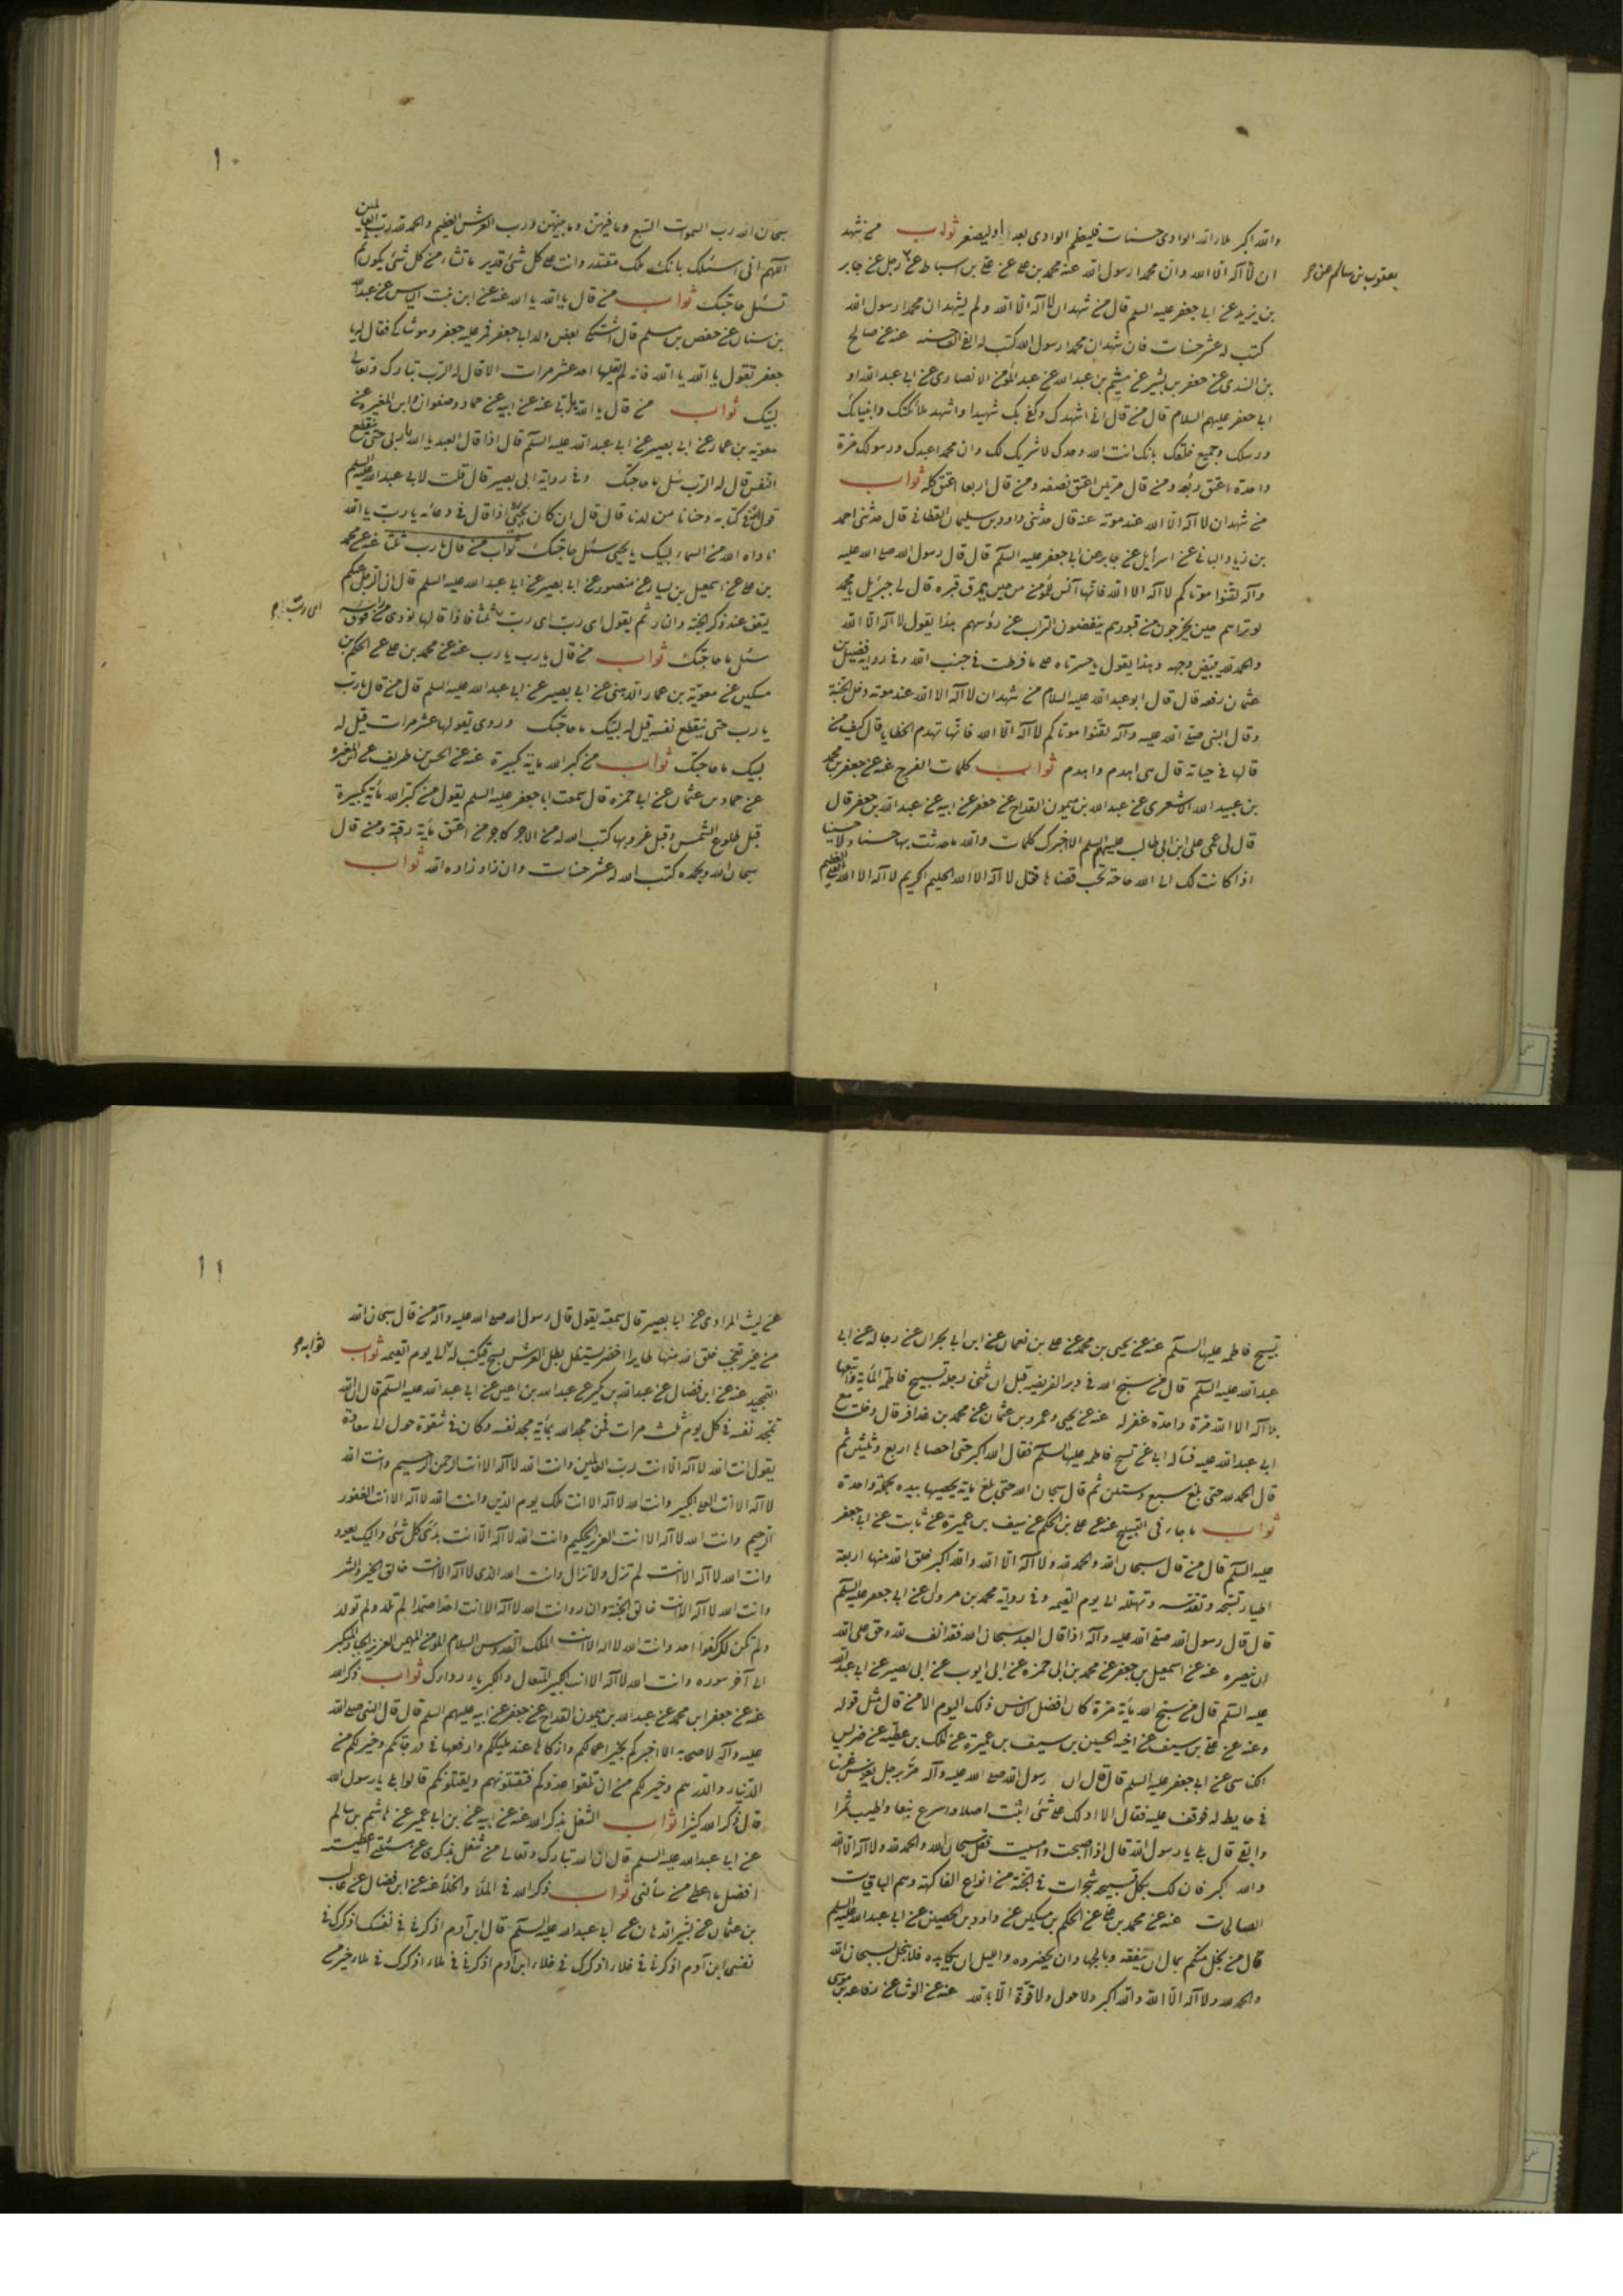 والله اكبر ملأ الله الوادى حسنات فليعظم الوادى بعد او ليصغر ثواب من شهد
ان لا آله الا الله وان محمدا رسول الله عنه محمد بن على عن على بن اسباط عن رجل عن جابر
يعقوب بن سالم عن
بن يزيد عن ابى جعفر عليه السلم قال من شهد ان لا آله الا الله ولم يشهد ان محمدا رسول الله
كتب له عشر حسنات فان شهد ان محمدا رسول الله كتب له الفى الف حسنه عنه عن صالح
بن السندى عن جعفر بن بشير عن ميثم بن عبدالله عن عبد المؤمن الانصارى عن ابى عبدالله او
ابى جعفر عليهم السلام قال من قال انى اشهدك وكفى بك شهيدا واشهد ملائكتك وانبيائك
ورسلك وجميع خلقك بانك انت الله وحدك لا شريك لك وان محمدا عبدك ورسولك مرة
واحدة اعتق ربعه ومن قال مرتين اعتق نصفه ومن قال اربعا اعتق كله ثواب
من شهد ان لا آله الا الله عند موته عنه قال حدثنى داود بن سليمان القطان قال حدثنى احمد
بن زياد اليمانى عن اسرائيل عن جابر عن ابى جعفر عليه السلم قال قال رسول الله صلى الله عليه
وآله لقنوا موتاكم لا آله الا الله فانها آنس للمؤمن من حين يمرق قبره قال لى جبرئيل يا محمد
لو تراهم حين يخرجون من قبورهم ينفضون التراب عن رؤسهم هذا يقول لا آله الا الله
والحمد لله يبيض وجهه وهذا يقول يا حسرتاه على ما فرطت فى جنب الله وفى رواية فضيل بن
عثمان رفعه قال قال ابو عبدالله عليه السلام من شهد ان لا آله الا الله عند موته دخل الجنة
وقال النبى صلى الله عليه وآله لقنوا موتاكم لا آله الا الله فانها تهدم الخطايا قال كيف من
قالها فى حياته قال هى اهدم واهدم ثواب كلمات الفرج عنه عن جعفر بن محمد
بن عبيد الله الاشعرى عن عبدالله بن ميمون القداح عن جعفر عن ابيه عن عبدالله بن جعفر قال
قال لى عمى على ابن ابى طالب عليهم السلم الا اخبرك كلمات والله ما حدثت بها حسنا ولا حسينا
اذا كانت لك الى الله حاجة تحب قضاها فقل لا آله الا الله الحليم الكريم لا آله الا الله العلى العظيم
١٠
سبحان الله رب السموات السبع وما فيهن وما بينهن ورب العرش العظيم والحمد لله رب العالمين
اللهم انى اسئلك بانك ملك مقتدر وانت على كل شئ قدير ما تشاء من كل شئ يكون ثم
تسئل حاجتك ثواب من قال يا الله يا الله عنه عن ابن بنت الياس عن عبدالله
بن سنان عن حفص بن مسلم قال اشتكى بعض ولد ابى جعفر فمر عليه جعفر وهو شاك فقال له يا
جعفر تقول يا الله يا الله فانه لم يقلها احد عشر مرات الا قال له الرب تبارك وتعالى
لبيك ثواب من قال يا الله يا ربى عنه عن ابيه عن حماد وصفوان وابن المغيره عن
معويه بن عمار عن ابى بصير عن ابى عبدالله عليه السلم قال اذا قال العبد يا الله يا ربى حتى ينقطع
النفس قال له الرب سل ما حاجتك وفى رواية ابى بصير قال قلت لابى عبدالله عليه السلم
قول الله فى كتابه وحنانا من لدنا قال قال ان كان يحيى اذا قال فى دعائه يا رب يا الله
ناداه الله من السماء لبيك يا يحيى سئل حاجتك ثواب من قال يا رب ثلثا عنه عن محمد
بن على عن اسمعيل بن يسار عن منصور عن ابى بصير عن ابى عبدالله عليه السلم قال ان الرجل منكم
يقف عند ذكر الجنة والنار ثم يقول اى رب اى رب ثلثا فاذا قالها نودى من فوق راسه
اى رب
سئل ما حاجتك ثواب من قال يا رب يا رب عنه عن محمد بن على عن الحكم بن
مسكين عن معويه بن عمار الدهنى عن ابى بصير عن ابى عبدالله عليه السلم قال من قال يا رب
يا رب حتى ينقطع نفسه قيل له لبيك ما حاجتك وروى تقولها عشر مرات قيل له
لبيك ما حاجتك ثواب من كبر الله ماية تكبيرة عنه عن الحسن بن ظريف عن المغيره
عن حماد بن عثمان عن ابى حمزه قال سمعت ابا جعفر عليه السلم يقول من كبر الله مأية تكبيرة
قبل طلوع الشمس وقبل غروبها كتب الله له من الاجر كاجر من اعتق مأية رقبة ومن قال
سبحان الله وبحمده كتب الله له عشر حسنات وان زاد زاده الله ثواب
تسبيح فاطمه عليها السلم عنه عن يحيى بن محمد عن على بن نعمان عن ابن ابى نجران عن رجاله عن ابى
عبدالله عليه السلم قال من سبح الله فى دبر الفريضه قبل ان يثنى رجله تسبيح فاطمه المأية واتبعها
بلا آله الا الله مرة واحدة غفر له عنه عن يحيى وعمرو بن عثمان عن محمد بن عذافر قال دخلت مع
ابى عبدالله عليه فسأله ابى عن تسبيح فاطمه عليها السلم فقال الله اكبر حتى احصاها اربع وثلثين ثم
قال الحمد لله حتى بلغ سبع وستين ثم قال سبحان الله حتى بلغ ماية يحصيها بيده جملة واحدة
ثواب ما جاء فى التسبيح عنه عن على بن الحكم عن سيف بن عميرة عن ثابت عن ابى جعفر
عليه السلم قال من قال سبحان الله والحمد لله ولا آله الا الله والله اكبر خلق الله منها اربعة
اطيار تسبحه وتقدسه وتهلله الى يوم القيمه وفى رواية محمد بن مروان عن ابى جعفر عليه السلم
قال قال رسول الله صلى الله عليه وآله اذا قال العبد سبحان الله فقد انف لله وحق على الله
ان ينصره عنه عن اسمعيل بن جعفر عن محمد بن ابى حمزه عن ابى ايوب عن ابى بصير عن ابى عبدالله
عليه السلم قال من سبح الله مأية مرة كان افضل الناس ذلك اليوم الا من قال مثل قوله
وعنه عن على بن سيف عن اخيه الحسين بن سيف بن عميرة عن ملك بن عطيه عن ضريس
الكناسى عن ابى جعفر عليه السلم قال قال ان رسول الله صلى الله عليه وآله مر برجل يغرس غرسا
فى حايط له فوقف عليه فقال الا ادلك على شئ اثبت اصلا واسرع ينعا واطيب ثمرا
وابقى قال بلى يا رسول الله قال اذا اصبحت وامسيت فقل سبحان الله والحمد لله ولا آله الا الله
والله اكبر فان لك بكل تسبيحه شجرات فى الجنة من انواع الفاكهة وهم الباقيات
الصالحات عنه عن محمد بن على عن الحكم بن مسكين عن داود بن الحصين عن ابى عبدالله عليه السلم
قال من بخل منكم بمال ان ينفقه وبالجهاد ان يحضره وبالليل ان يكابده فلا يبخل بسبحان الله
والحمد لله ولا آله الا الله والله اكبر ولا حول ولا قوة الا بالله عنه عن الوشا عن رفاعه بن موسى
١١
عن ليث المرادى عن ابى بصير قال سمعته يقول قال رسول الله صلى الله عليه وآله من قال سبحان الله
من غير تعجب خلق الله منها طايرا اخضر يستظل بظل العرش يسبح فيكتب له الى يوم القيمه ثواب
ثوابه
التمجيد عنه عن ابن فضال عن عبدالله بن بكير عن عبدالله بن اعين عن ابى عبدالله عليه السلم قال ان الله
تمجد نفسه فى كل يوم ثلث مرات فمن مجد الله بما به مجد نفسه وكان فى شقوة حول الى سعادة
يقول انت الله لا آله الا انت رب العالمين وانت الله لا آله الا انت الرحمن الرحيم وانت الله
لا آله الا انت العلى الكبير وانت الله لا آله الا انت ملك يوم الدين وانت الله لا آله الا انت الغفور
الرحيم وانت الله لا آله الا انت العزيز الحكيم وانت الله لا آله الا انت بدئ كل شئ واليك يعود
وانت الله لا آله الا انت لم تزل ولا تزال وانت الله الذى لا آله الا انت خالق الخير والشر
وانت الله لا آله الا انت خالق الجنة والنار وانت الله لا آله الا انت احدا صمدا لم تلد ولم تولد
ولم تكن لك كفوا احد وانت الله لا اله الا انت الملك القدوس السلام المؤمن المهيمن العزيز الجبار المتكبر
الى آخر سوره وانت الله لا آله الا انت الكبير المتعال والكبرياء رداؤك ثواب ذكر الله
عنه عن جعفر ابن محمد عن عبدالله بن ميمون القداح عن جعفر عن ابيه عليهم السلم قال قال النبى صلى الله
عليه وآله لاصحابه الا اخبركم بخير اعمالكم وازكاها عند مليككم وارفعها فى درجاتكم وخير لكم من
الدينار والدرهم وخير لكم من ان تلقوا عدوكم فتقتلونهم ويقتلونكم قالوا بلى يا رسول الله
قال ذكر الله كثيرا ثواب الشغل بذكر الله عنه عن ابيه عن بن ابى عمير عن هاشم بن سالم
عن ابى عبدالله عليه السلم قال ان الله تبارك وتعالى من شغل بذكرى عن مسئلتى اعطيته
افضل ما اعطى من سألنى ثواب ذكر الله فى الملأ والخلأ عنه عن ابن فضال عن غالب
بن عثمان عن بشير الدهان عن ابى عبدالله عليه السلم قال ابن آدم اذكرنى فى نفسك اذكرك فى
نفسى ابن آدم اذكرنى فى خلاء اذكرك فى خلاء ابن آدم اذكرنى فى ملاء اذكرك فى ملاء خير من